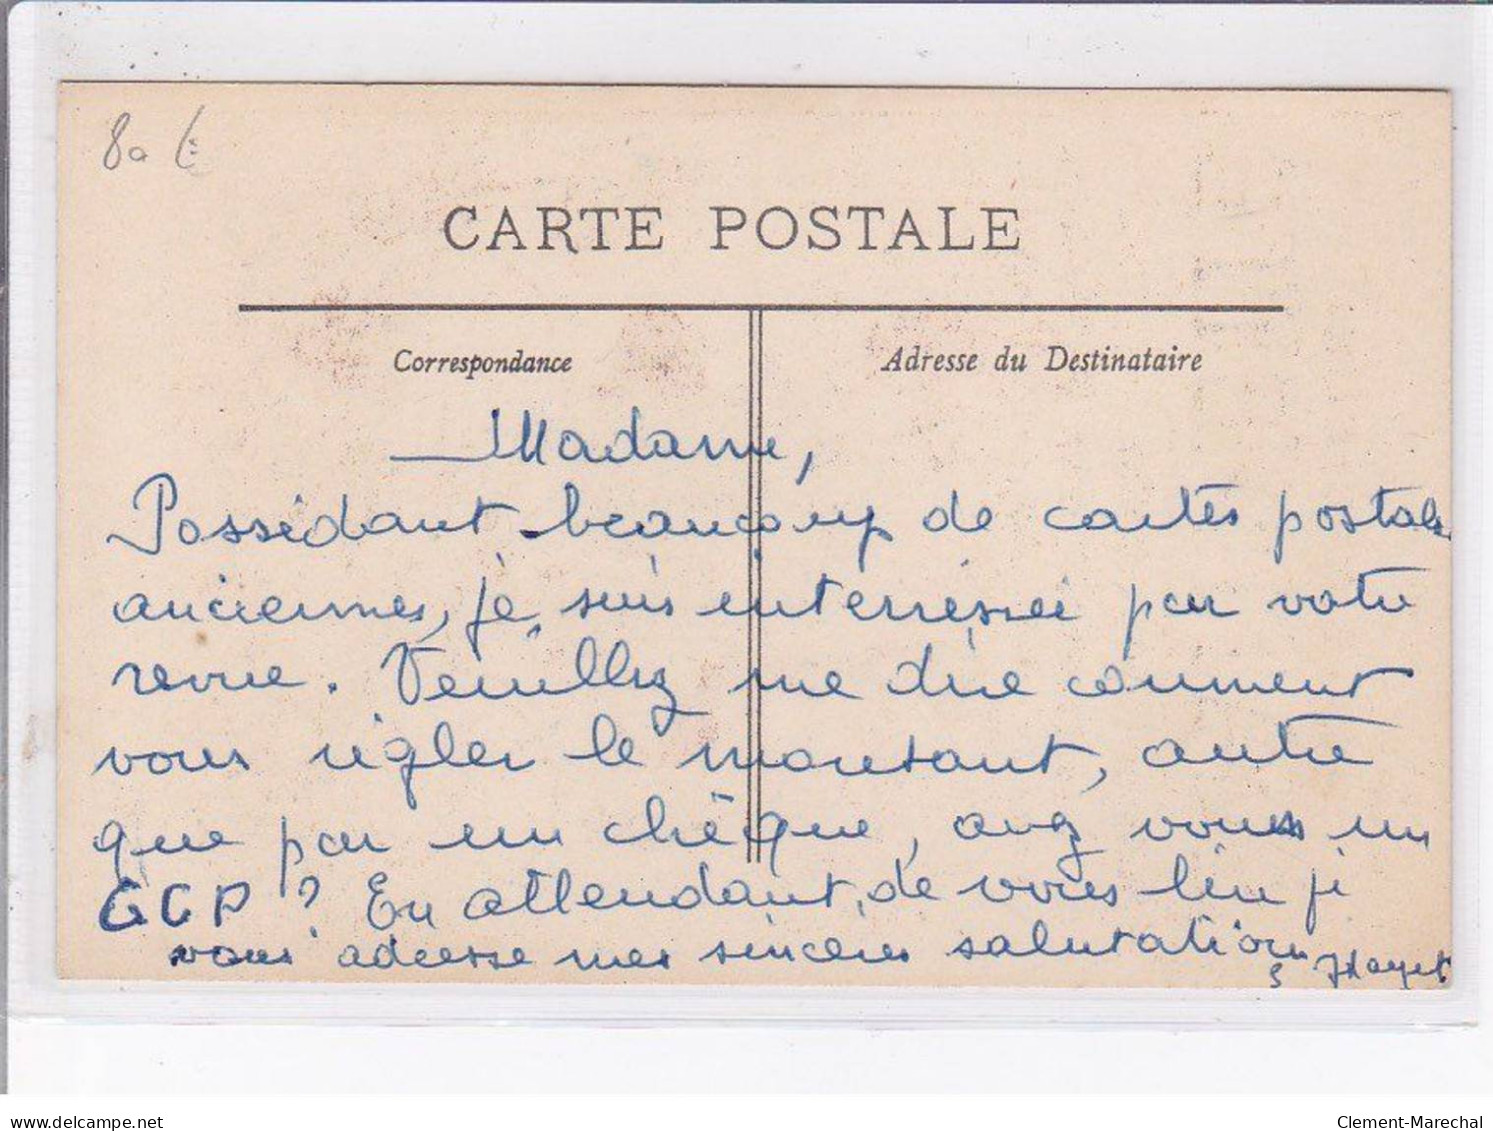 80 €
CARTE POSTALE
Correspondance
Adresse du Destinataire
Madame,
Possédant beaucoup de cartes postales
anciennes, je suis interressée par votre
revue. Veuillez me dire comment
vous régler le montant, autre
que par un chèque, avez vous un
CCP ? En attendant, de vous lire je
vous adresse mes sincères salutations
www.delcampe.net
Clement-Marechal